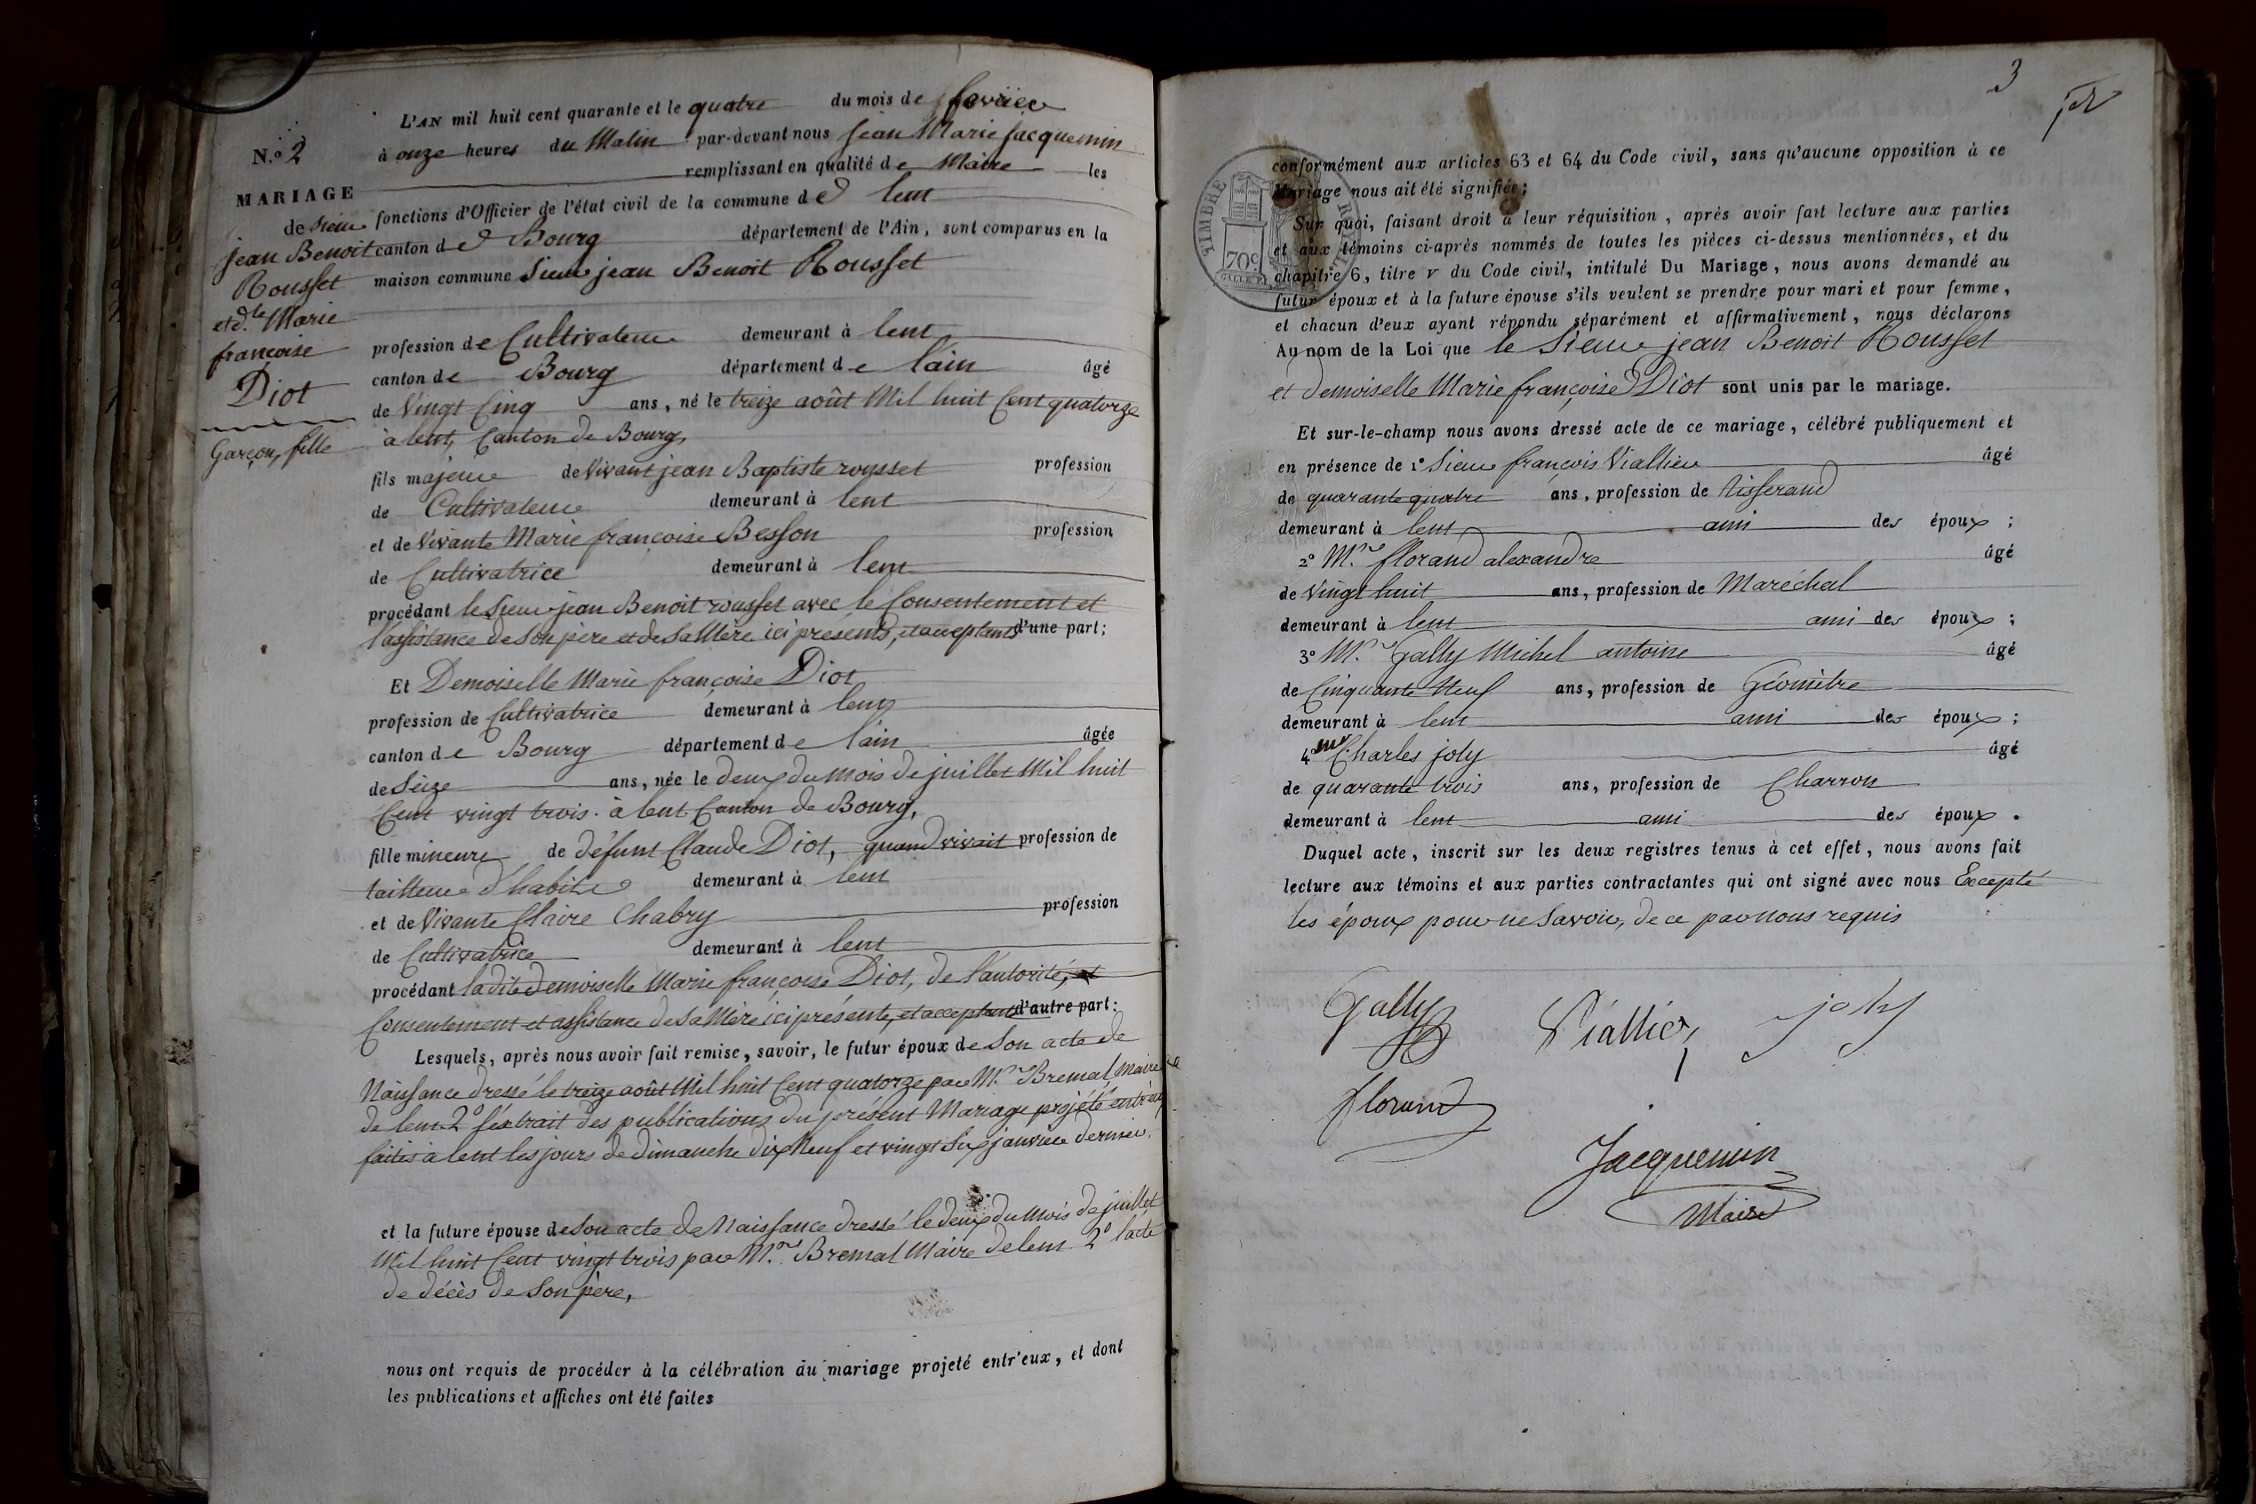 N.° 2
MARIAGE
de Sieur
jean Benoit
Rousset
et d.lle Marie
françoise
Diot
Garçon, fille
L'AN mil huit cent quarante et le quatre du mois de fevrier
à onze heures du Matin par-devant nous Jean Marie Jacquemin
remplissant en qualité de Maire les
fonctions d'Officier de l'état civil de la commune de lent
canton de Bourg département de l'Ain, sont comparus en la
maison commune Sieur jean Benoit Rousset
profession de Cultivateur demeurant à lent
canton de Bourg département de l'ain âgé
de Vingt Cinq ans, né le treize août Mil huit Cent quatorze
à lent, Canton de Bourg,
fils majeur de Vivant jean Baptiste rousset profession
de Cultivateur demeurant à lent
et de Vivante Marie françoise Besson profession
de Cultivatrice demeurant à lent
procédant le Sieur jean Benoit rousset avec le Consentement et
l'assistance de son père et de sa Mère ici présents, et acceptants d'une part;
Et Demoiselle Marie françoise Diot
profession de Cultivatrice demeurant à lent
canton de Bourg département de l'ain âgée
de Seize ans, née le deux du mois de juillet Mil huit
Cent vingt trois à lent Canton de Bourg,
fille mineure de défunt Claude Diot, quand vivait profession de
tailleur d'habits demeurant à lent
et de Vivante Claire Chabry profession
de Cultivatrice demeurant à lent
procédant ladite demoiselle Marie françoise Diot, de l'autorité, et
Consentement et assistance de sa Mère ici présente, et acceptant d'autre part:
Lesquels, après nous avoir fait remise, savoir, le futur époux de son acte de
Naissance dressé le treize août Mil huit Cent quatorze par Mr Bremal Maire
de lent 2° l'extrait des publications du présent Mariage projeté entr'eux
faites à lent les jours de dimanche dix Neuf et vingt Six janvier dernier.
et la future épouse de son acte de Naissance dressé le deux du mois de juillet
Mil huit Cent vingt trois par Mr Bremal Maire de lent 2° l'acte
de décès de son père,
nous ont requis de procéder à la célébration du mariage projeté entr'eux, et dont
les publications et affiches ont été faites
3
TIMBRE ROYAL
70c
conformément aux articles 63 et 64 du Code civil, sans qu'aucune opposition à ce
Mariage nous ait été signifiée;
Sur quoi, faisant droit à leur réquisition, après avoir fait lecture aux parties
et aux témoins ci-après nommés de toutes les pièces ci-dessus mentionnées, et du
chapitre 6, titre v du Code civil, intitulé Du Mariage, nous avons demandé au
futur époux et à la future épouse s'ils veulent se prendre pour mari et pour femme,
et chacun d'eux ayant répondu séparément et affirmativement, nous déclarons
Au nom de la Loi que le Sieur jean Benoit Rousset
et demoiselle Marie françoise Diot sont unis par le mariage.
Et sur-le-champ nous avons dressé acte de ce mariage, célébré publiquement et
en présence de 1° Sieur françois Viallier âgé
de quarante quatre ans, profession de tisserand
demeurant à lent ami des époux;
2° Mr florand alexandre âgé
de Vingt huit ans, profession de Maréchal
demeurant à lent ami des époux;
3° Mr Gally Michel antoine âgé
de Cinquante Neuf ans, profession de Géomètre
demeurant à lent ami des époux;
4° Mr Charles joly âgé
de quarante trois ans, profession de Charron
demeurant à lent ami des époux.
Duquel acte, inscrit sur les deux registres tenus à cet effet, nous avons fait
lecture aux témoins et aux parties contractantes qui ont signé avec nous Excepté
les époux pour ne Savoir, de ce par nous requis
Gally Viallier joly
florand
Jacquemin
Maire